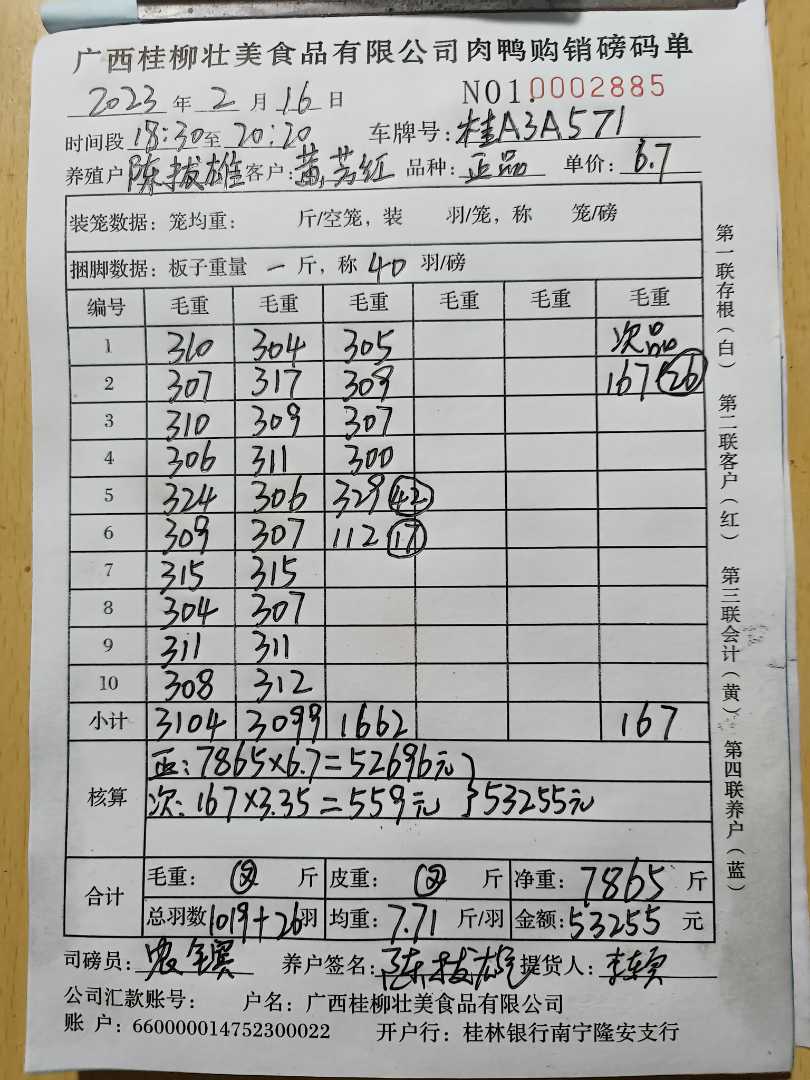 广西桂柳壮美食品有限公司肉鸭购销磅码单
2023 年 2 月 16 日 NO1.0002885
时间段 18:30 至 20:20 车牌号: 桂A3A571
养殖户 陈拔雄 客户: 黄芳红 品种: 正品 单价: 6.7
装笼数据: 笼均重: 斤/空笼, 装 羽/笼, 称 笼/磅
捆脚数据: 板子重量 一 斤, 称 40 羽/磅
编号 毛重 毛重 毛重 毛重 毛重 毛重
1 310 304 305 次品
2 307 317 309 167 26
3 310 309 307
4 306 311 300
5 324 306 329 42
6 309 307 112 17
7 315 315
8 304 307
9 311 311
10 308 312
小计 3104 3099 1662 167
核算
正: 7865×6.7=52696元
次: 167×3.35=559元 }53255元
合计
毛重: 斤 皮重: 斤 净重: 7865 斤
总羽数 1019+26 羽 均重: 7.71 斤/羽 金额: 53255 元
司磅员: 养户签名: 陈拔雄 提货人:
公司汇款账号: 户名: 广西桂柳壮美食品有限公司
账 户: 660000014752300022 开户行: 桂林银行南宁隆安支行
第一联存根(白) 第二联客户(红) 第三联会计(黄) 第四联养户(蓝)